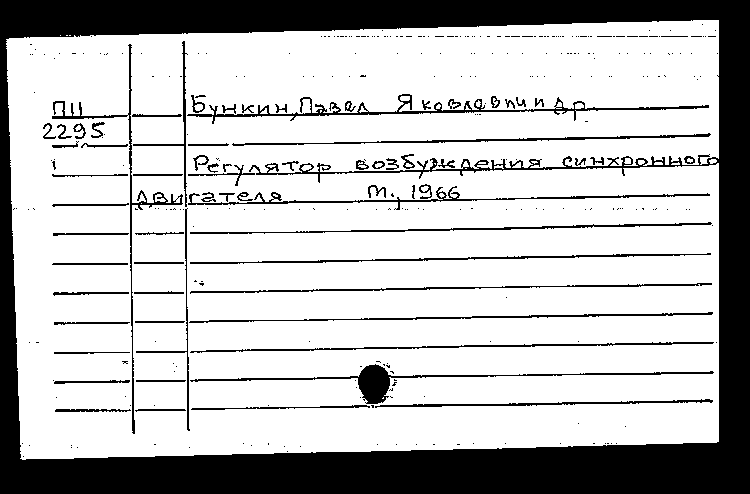 П11 Бункин, Павел Яковлевич и др.
2295
Регулятор возбуждения синхронного
двигателя М., 1966